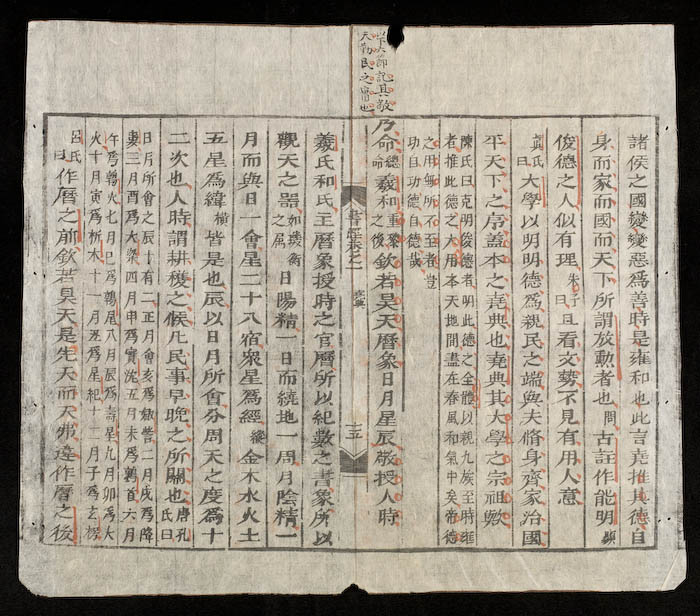 以下六節記其敬
天勤民之
諸侯之國變變惡爲善時是雍和也此言堯推其德自
身而家而國而天下所謂放勳者也問古註作能明顯
俊德之人似有理朱子曰且看文勢不見有用人意
眞氏曰大學以明明德爲親民之端與夫脩身齊家治國
平天下之序蓋本之堯典也堯典其大學之宗祖歟
陳氏曰克明俊德者明此德之全體以親九族至時雍
者推此德之大用本天地間盡在春風和氣中矣帝德
之用無所不至者豈
功自功德自德哉
乃命總命羲和重黎之後欽若昊天曆象日月星辰敬授人時
書經卷之一 堯典 十五
羲氏和氏主曆象授時之官曆所以紀數之書象所以
觀天之器如璣衡之屬日陽精一日而繞地一周月陰精一
月而與日一會星二十八宿衆星爲經縱金木水火土
五星爲緯橫皆是也辰以日月所會分周天之度爲十
二次也人時謂耕穫之候凡民事早晚之所關也唐孔氏曰
日月所會之辰十有二正月會亥爲娵訾二月戌爲降
婁三月酉爲大梁四月申爲實沈五月未爲鶉首六月
午爲鶉火七月巳爲鶉尾八月辰爲壽星九月卯爲大
火十月寅爲析木十一月丑爲星紀十二月子爲玄枵
呂氏曰作曆之前欽若昊天是先天而天弗違作曆之後